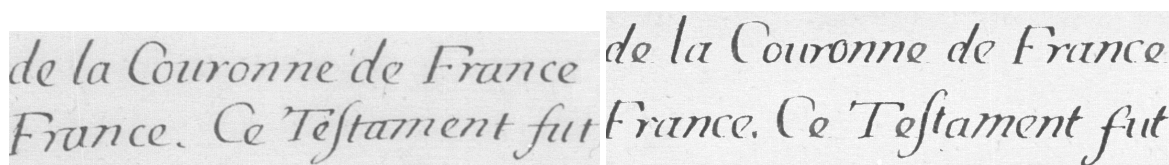 de la Couronne de France
France. Ce Teſtament fut
de la Couronne de France
France. Ce Teſtament fut